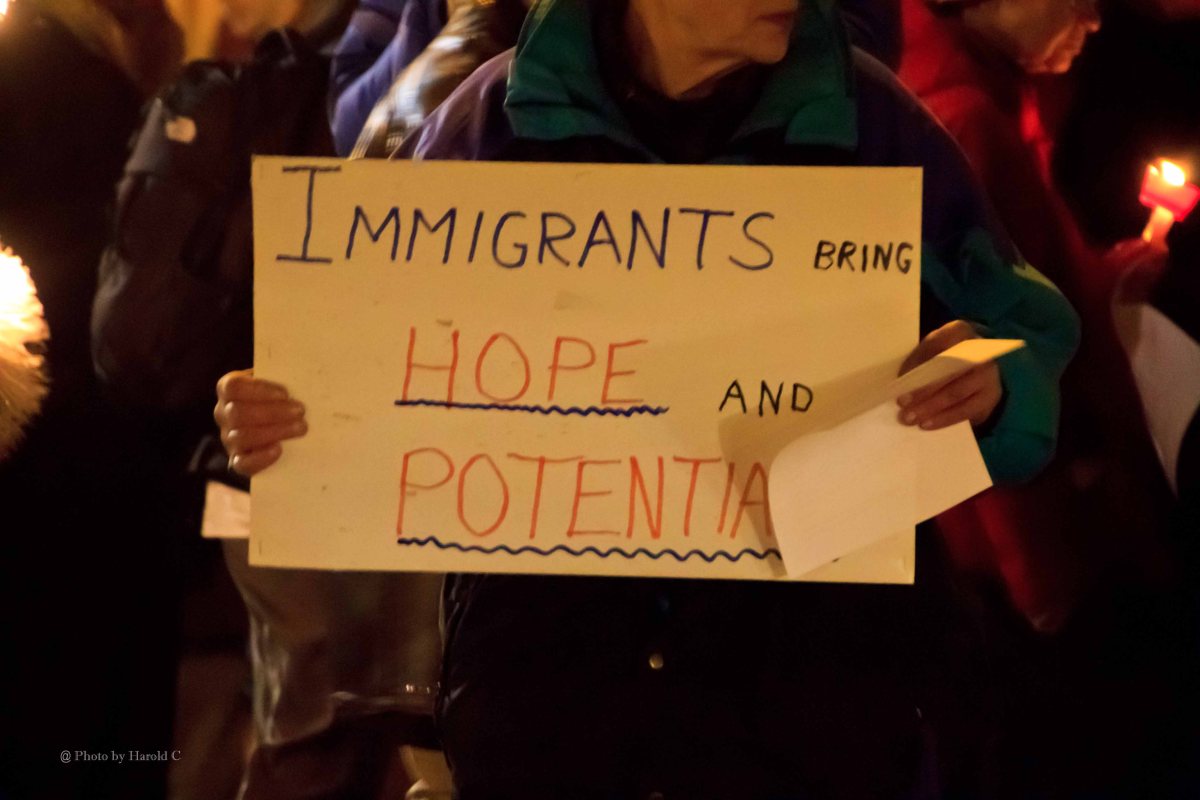 IMMIGRANTS BRING
HOPE AND
POTENTIA
@ Photo by Harold C